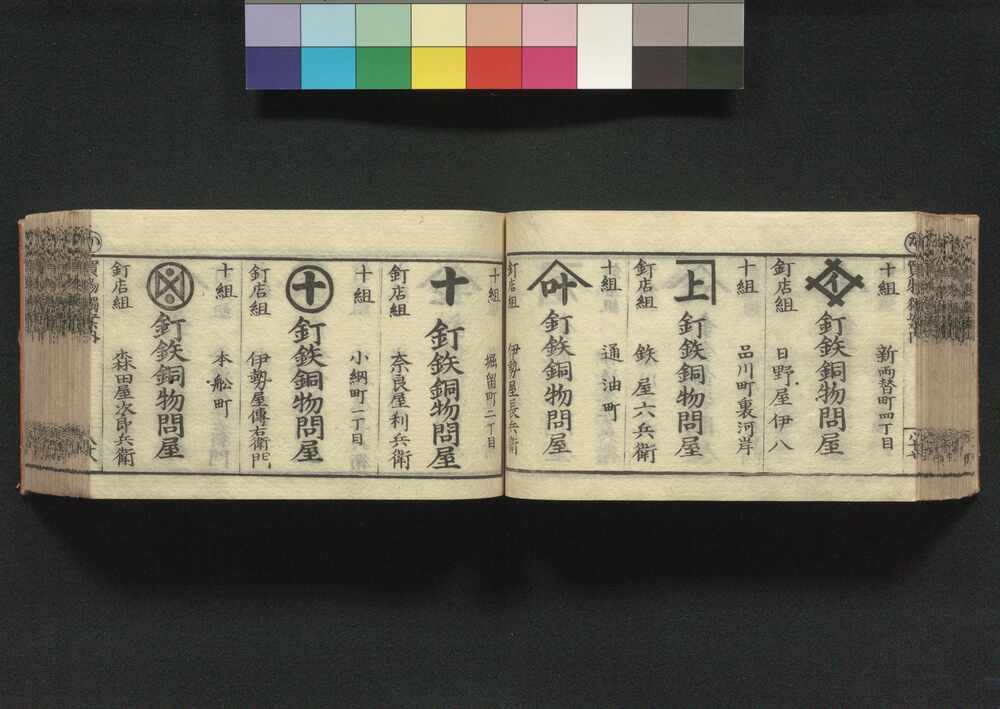 十組 新両替町四丁目
釘鉄銅物問屋
釘店組 日野屋伊八
十組 品川町裏河岸
上
釘鉄銅物問屋
釘店組 鉄屋六兵衛
十組 通油町
叶
釘鉄銅物問屋
釘店組 伊勢屋長兵衛
十組 堀留町二丁目
十
釘鉄銅物問屋
釘店組 奈良屋利兵衛
十組 小網町一丁目
十
釘鉄銅物問屋
釘店組 伊勢屋傳右衛門
十組 本舩町
釘鉄銅物問屋
釘店組 森田屋次郎兵衛